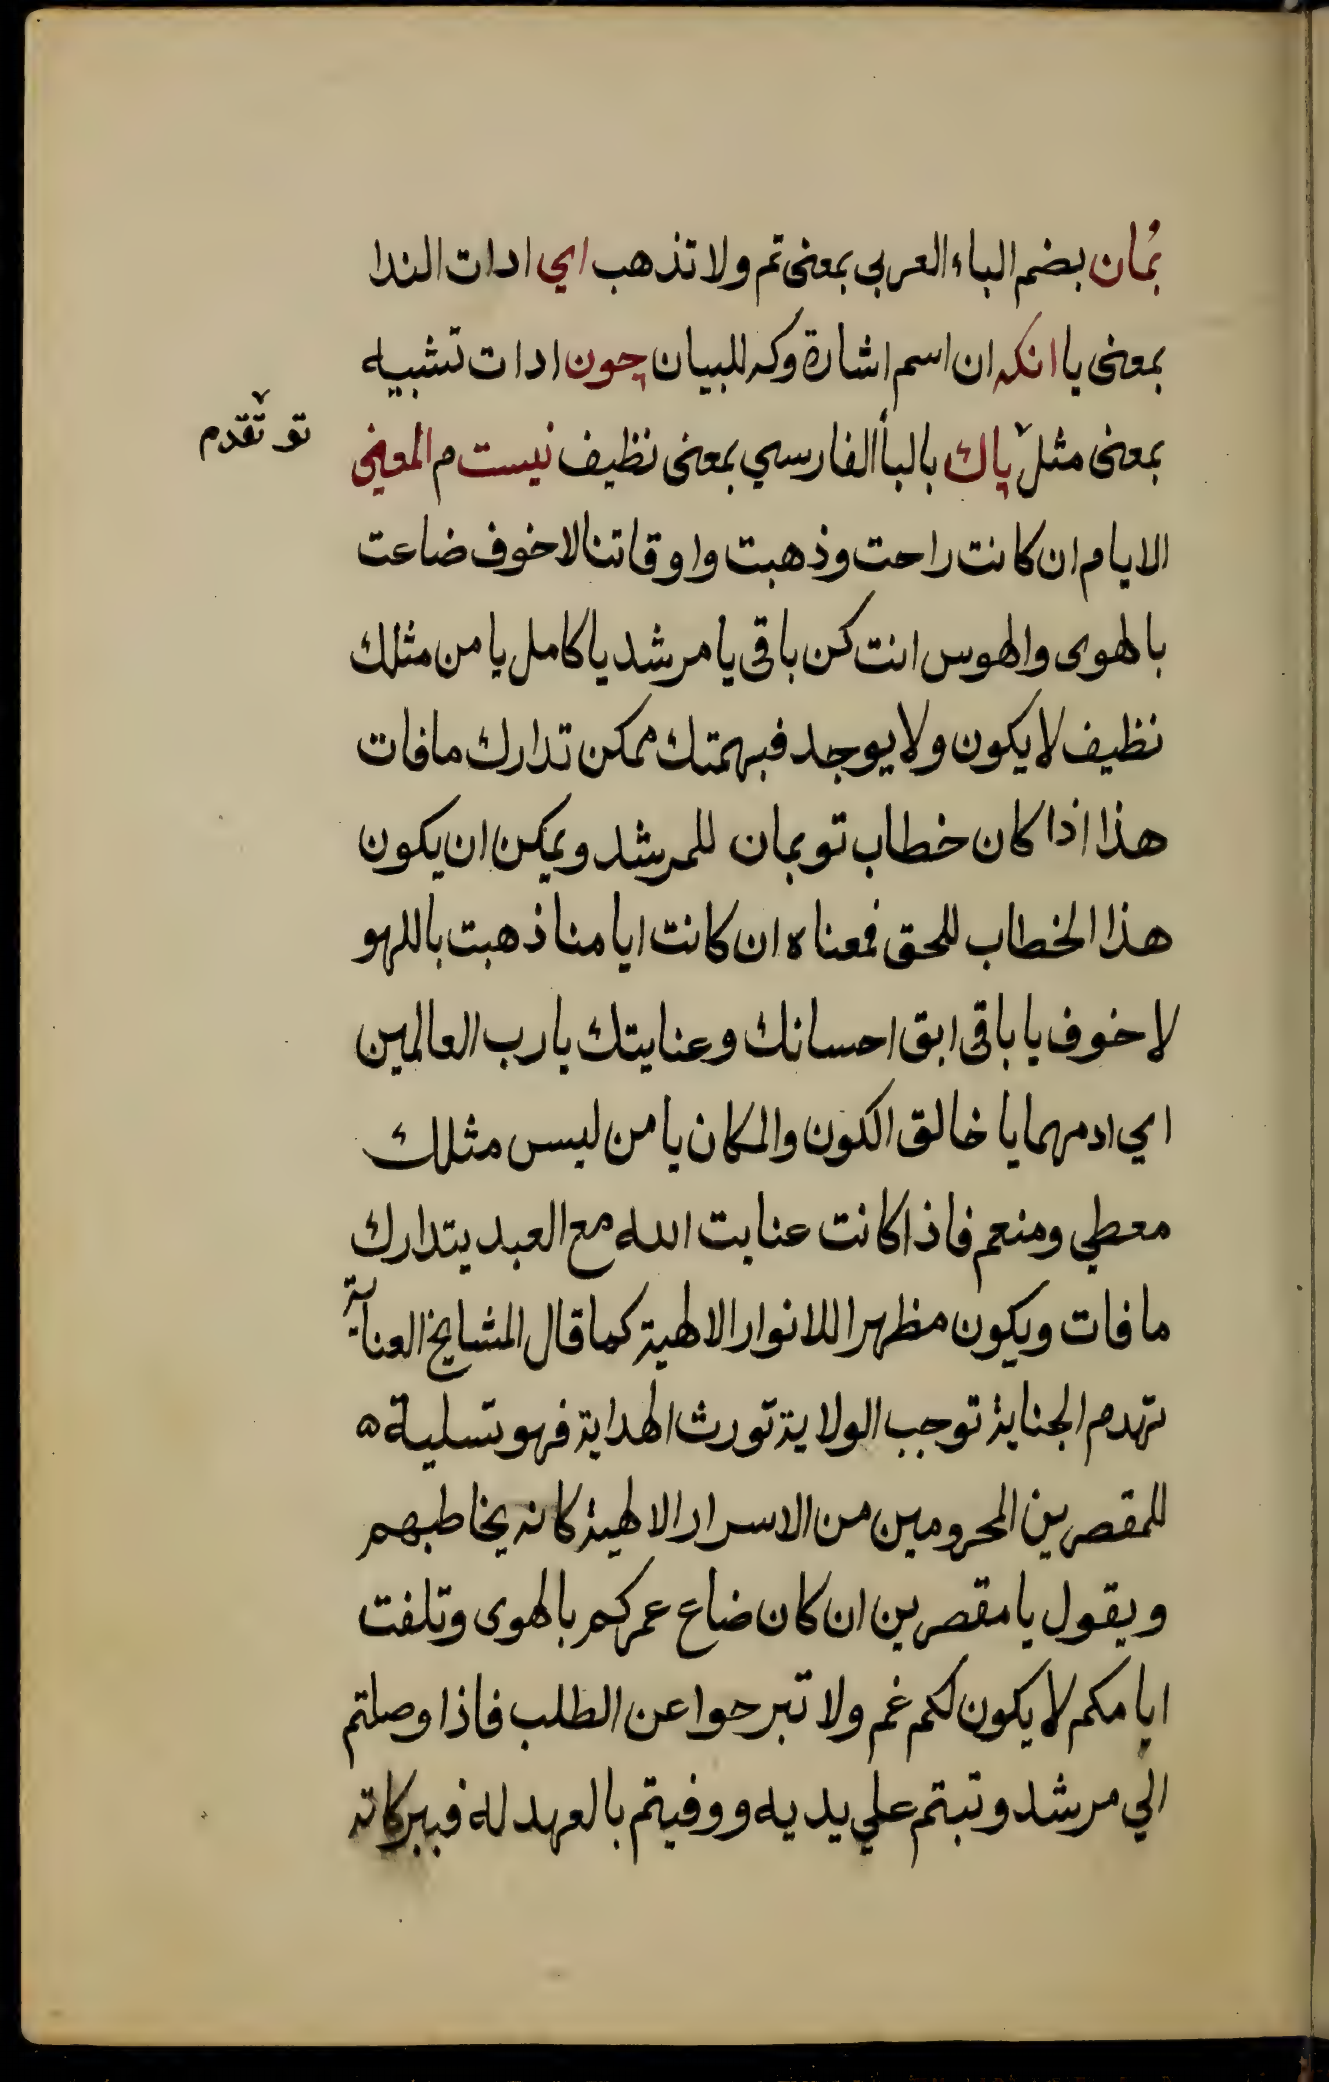 بُمان بضم الباء العربى بمعنى تم ولا تذهب اى ادات الندا
بمعنى يا انكه ان اسم اشارة وكه للبيان چون ادات تشبيه
بمعنى مثل پاك بالبأ الفارسي بمعنى نظيف نيست م المعنى
تو تقدم
الايام ان كانت راحت وذهبت واوقاتنا لا خوف ضاعت
بالهوى والهوس انت كن باقى يا مرشد يا كامل يا من مثلك
نظيف لا يكون ولا يوجد فبهمتك ممكن تدارك ما فات
هذا اذا كان خطاب تو بمان للمرشد ويمكن ان يكون
هذا الخطاب للحق فمعناه ان كانت ايامنا ذهبت باللهو
لا خوف يا باقى ابق احسانك وعنايتك يا رب العالمين
اي ادمهما يا خالق الكون والمكان يا من ليس مثلك
معطي ومنعم فاذا كانت عنايت الله مع العبد يتدارك
ما فات ويكون مظهرا للانوار الالهية كما قال المشايخ العناية
تهدم الجناية توجب الولاية تورث الهداية فهو تسلية ه
للمقصرين المحرومين من الاسرار الالهية كانه يخاطبهم
ويقول يا مقصرين ان كان ضاع عمركم بالهوى وتلفت
ايامكم لا يكون لكم غم ولا تبرحوا عن الطلب فاذا وصلتم
الي مرشد وتبتم علي يديه ووفيتم بالعهد له فببركاته